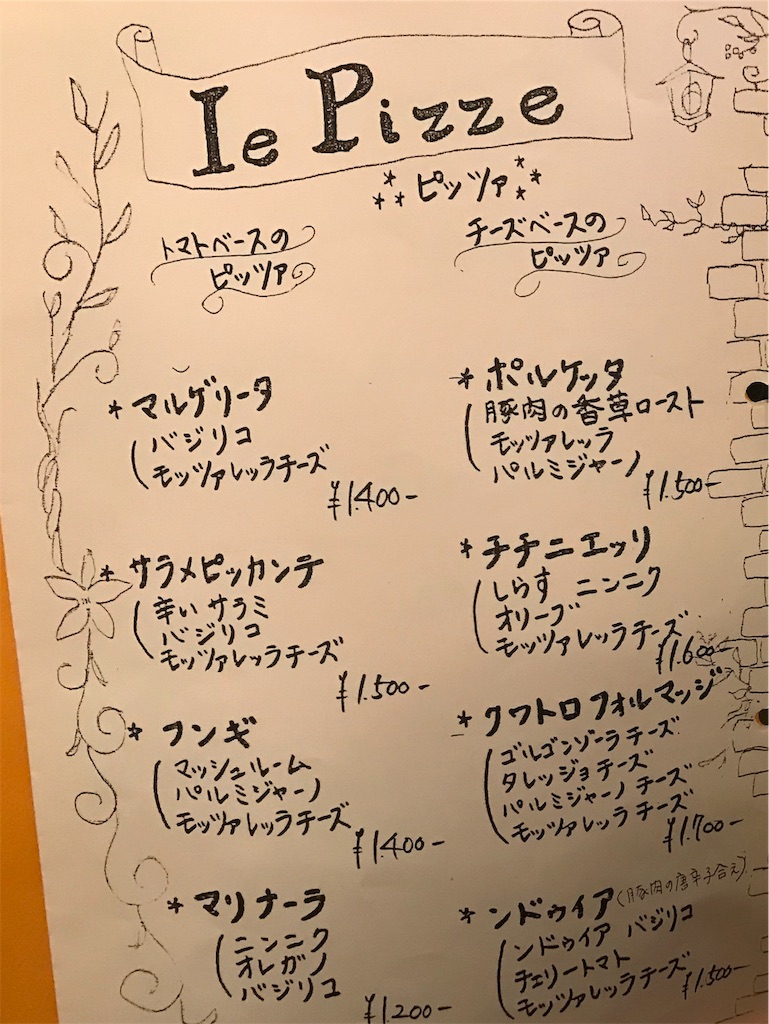 Ie Pizze
ピッツァ
トマトベースの
ピッツァ
* マルゲリータ
バジリコ
モッツァレッラチーズ
¥1.400-
* サラメピッカンテ
辛いサラミ
バジリコ
モッツァレッラチーズ
¥1.500-
* フンギ
マッシュルーム
パルミジャーノ
モッツァレッラチーズ
¥1.400-
* マリナーラ
ニンニク
オレガノ
バジリコ
¥1.200-
チーズベースの
ピッツァ
* ポルケッタ
豚肉の香草ロースト
モッツァレッラ
パルミジャーノ
¥1.500-
* チチニエッリ
しらす ニンニク
オリーブ
モッツァレッラチーズ
¥1.600-
* クワトロフォルマッジ
ゴルゴンゾーラチーズ
タレッジョチーズ
パルミジャーノチーズ
モッツァレッラチーズ
¥1.700-
* ンドゥイア (豚肉の唐辛子合え)
ンドゥイア バジリコ
チェリートマト
モッツァレッラチーズ
¥1.500-